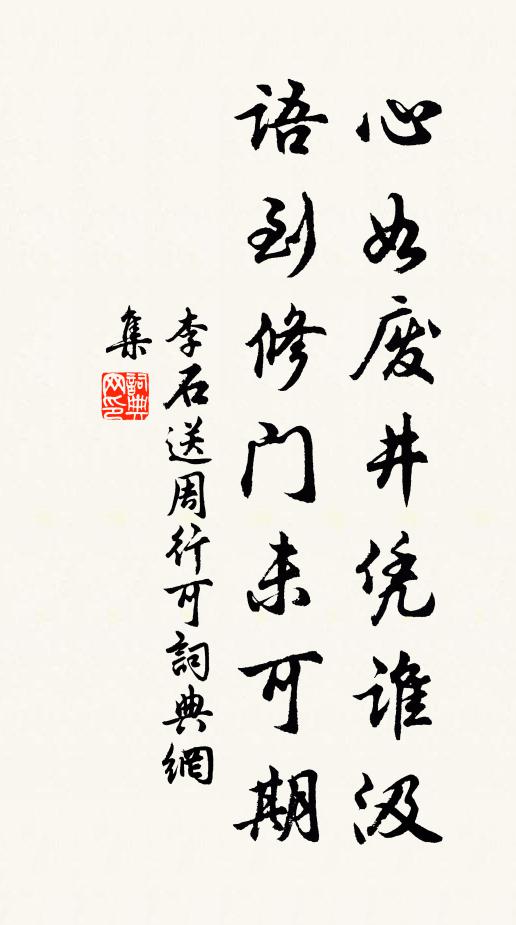 心如废井凭谁汲
语到修门未可期
李石送周行可詞典網
集
詞典
网印